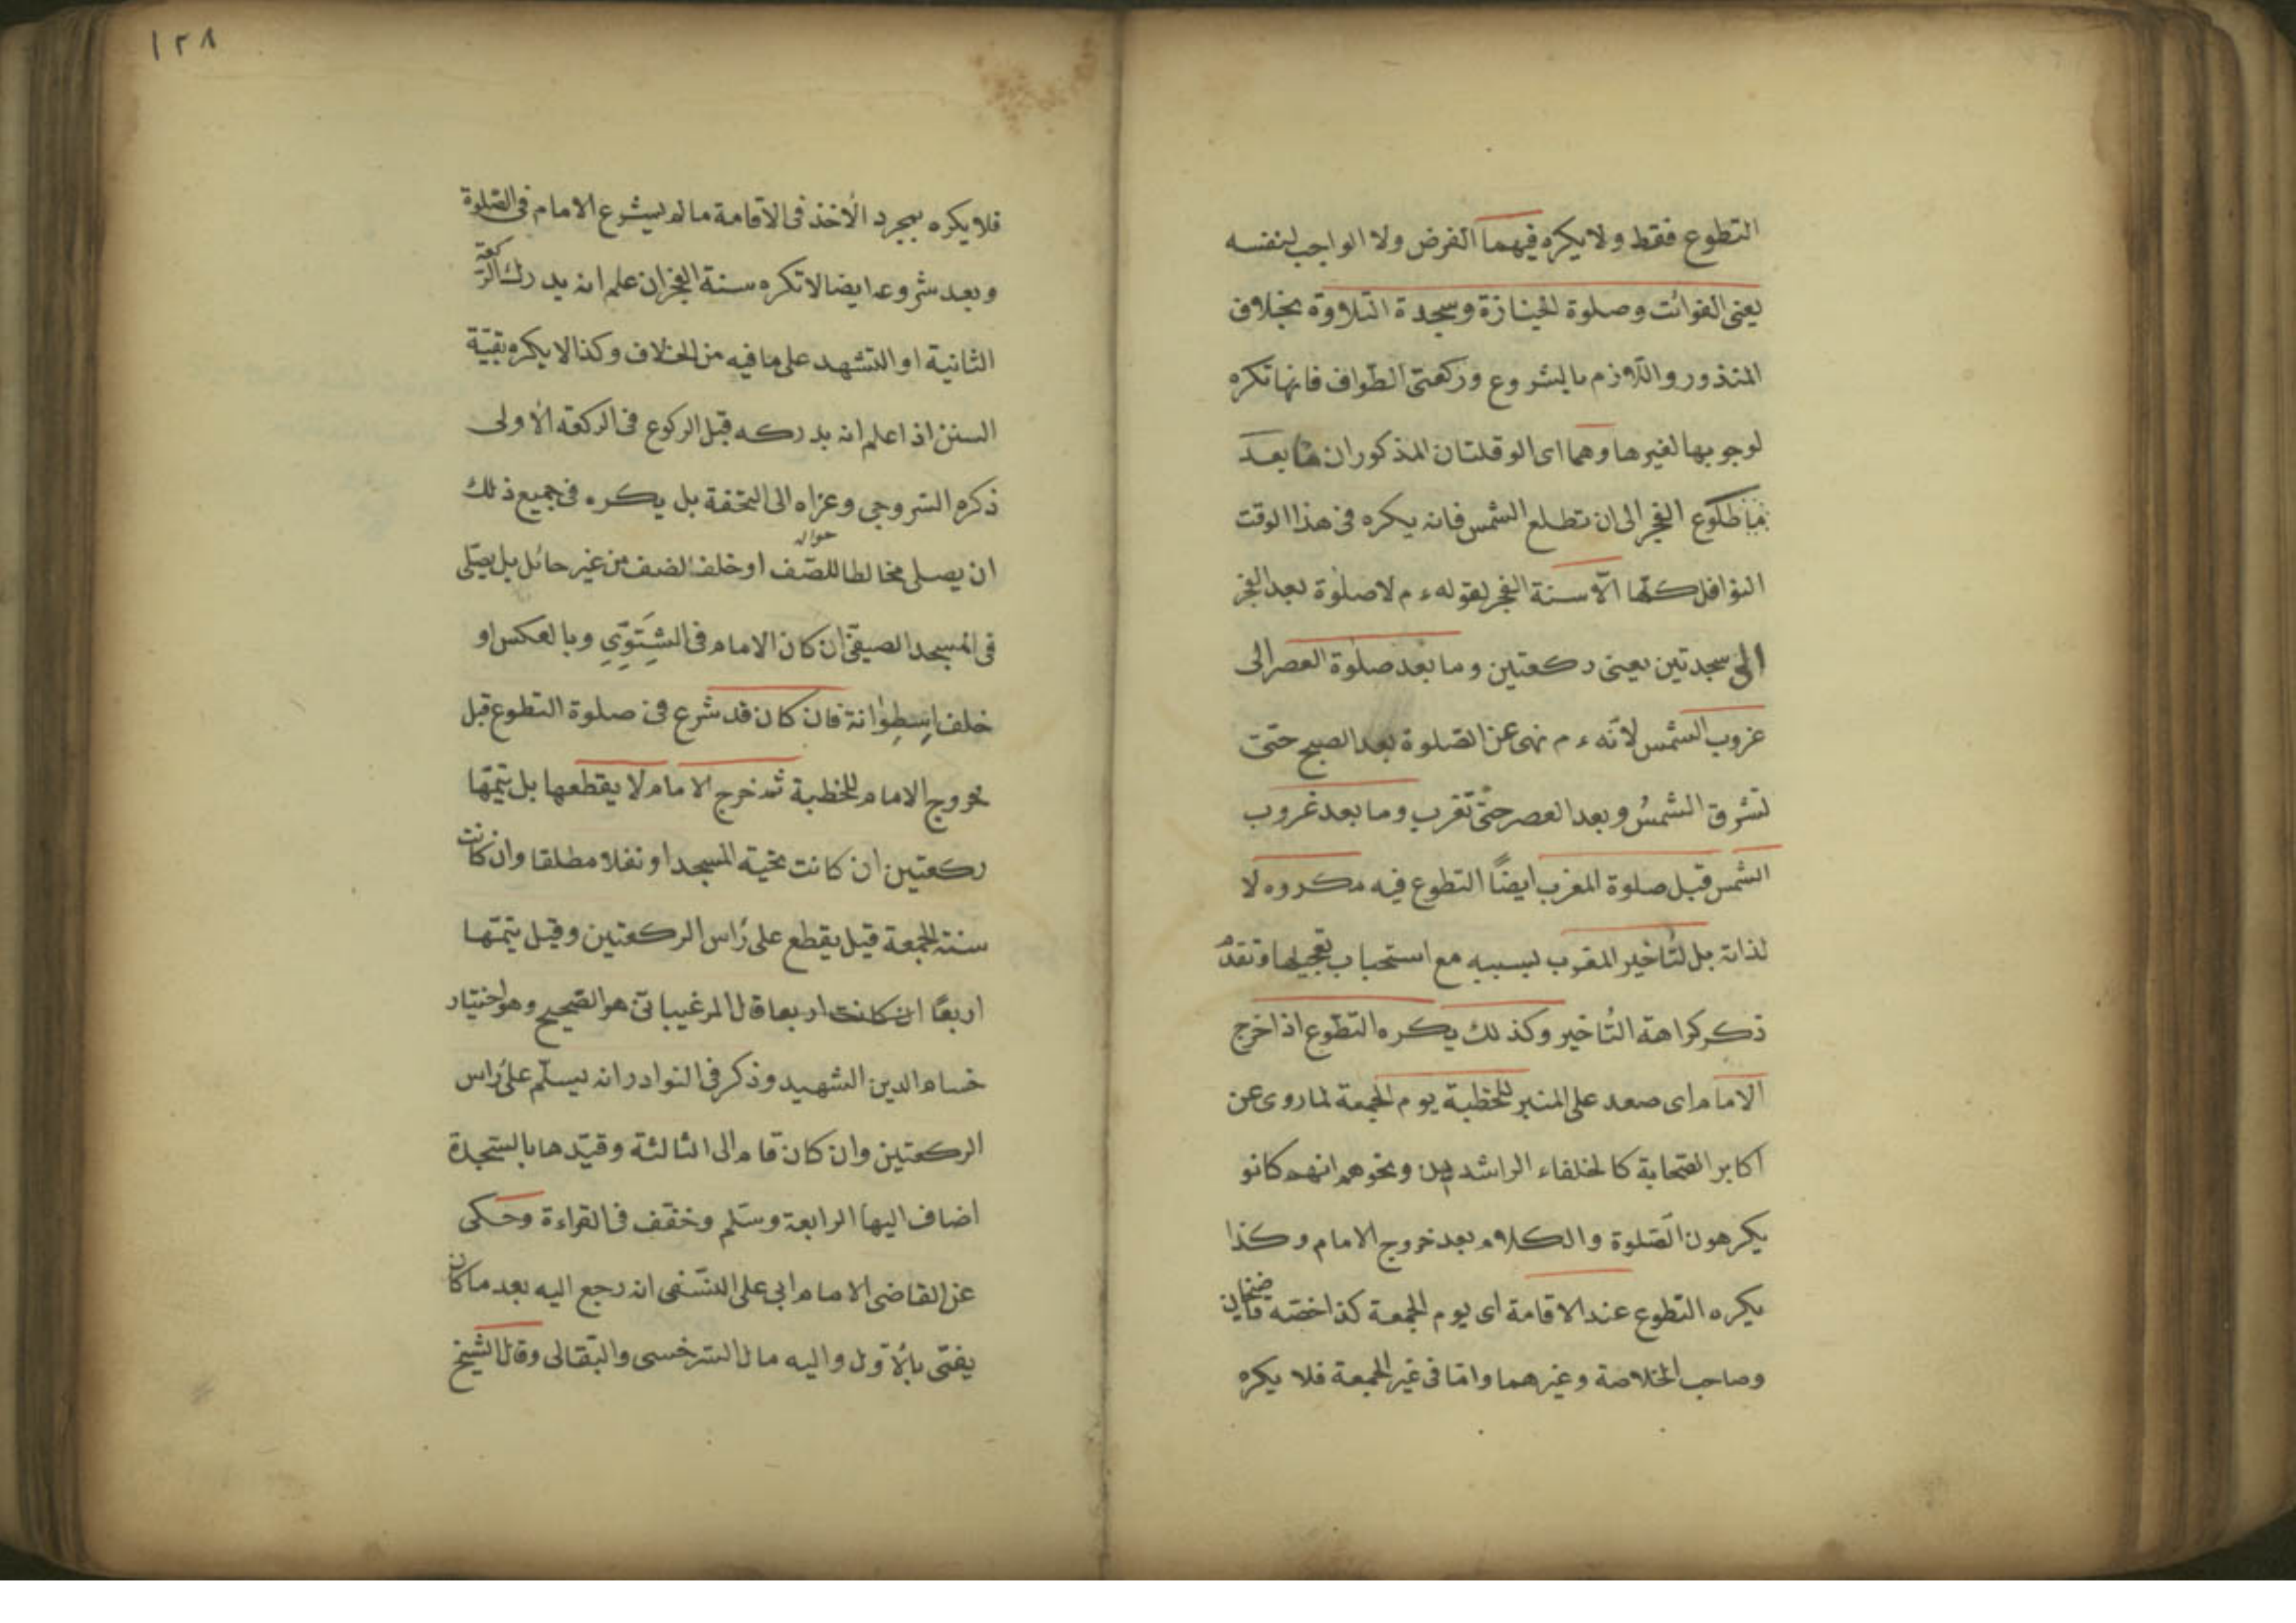 التطوع فقط ولا يكره فيهما الفرض ولا الواجب لنفسه
يعنى الفوائت وصلوة الجنازة وسجدة التلاوة بخلاف
المنذور واللازم بالشروع وركعتى الطواف فانها تكره
لوجوبها لغيرها وهما اى الوقتان المذكوران ما بعد
طلوع الفجر الى ان تطلع الشمس فانه يكره فى هذا الوقت
النوافل كلها الا سنة الفجر لقوله ء م لا صلوة بعد الفجر
الى سجدتين يعنى ركعتين وما بعد صلوة العصر الى
غروب الشمس لانه ء م نهى عن الصلوة بعد الصبح حتى
تشرق الشمس وبعد العصر حتى تغرب وما بعد غروب
الشمس قبل صلوة المغرب ايضًا التطوع فيه مكروه لا
لذاته بل لتأخير المغرب بسببه مع استحباب تعجيلها وتقدم
ذكر كراهة التأخير وكذلك يكره التطوع اذا خرج
الامام اى صعد على المنبر للخطبة يوم الجمعة لما روى عن
اكابر الصحابة كالخلفاء الراشدين ونحوهم انهم كانو
يكرهون الصلوة والكلام بعد خروج الامام وكذا
يكره التطوع عند الاقامة اى يوم الجمعة كذا خصه قاضيخان
وصاحب الخلاصة وغيرهما واما فى غير الجمعة فلا يكره
١٢٨
فلا يكره بمجرد الأخذ فى الاقامة ما لم يشرع الامام فى الصلوة
وبعد شروعه ايضا لا تكره سنة الفجر ان علم انه يدرك الركعة
الثانية او التشهد على ما فيه من الخلاف وكذا لا يكره بقيّة
السنن اذا علم انه يدركه قبل الركوع فى الركعة الأولى
ذكره السروجى وعزاه الى التحفة بل يكره فى جميع ذلك
ان يصلى مخالطا للصّف او خلف الصف من غير حائل بل يصلّى
فى المسجد الصيفى ان كان الامام فى الشِتَوِّي وبالعكس او
خلف اِسطِوانة فان كان قد شرع فى صلوة التطوع قبل
خروج الامام للخطبة ثم خرج الامام لا يقطعها بل يتمّها
ركعتين ان كانت تحية المسجد او نفلا مطلقا وان كانت
سنة الجمعة قيل يقطع على رأس الركعتين وقيل يتمّها
اربعًا ان كانت اربعا قال المرغينانى هو الصحيح وهو اختيار
حسام الدين الشهيد وذكر فى النوادر انه يسلّم على رأس
الركعتين وان كان قام الى الثالثة وقيّدها بالسّجدة
اضاف اليها الرابعة وسلّم وخفّف فى القراءة وحكى
عن القاضى الامام ابى على النسفى انه رجع اليه بعد ما كان
يفتى بالأول واليه مال السرخسى والبقالى وقال الشيخ